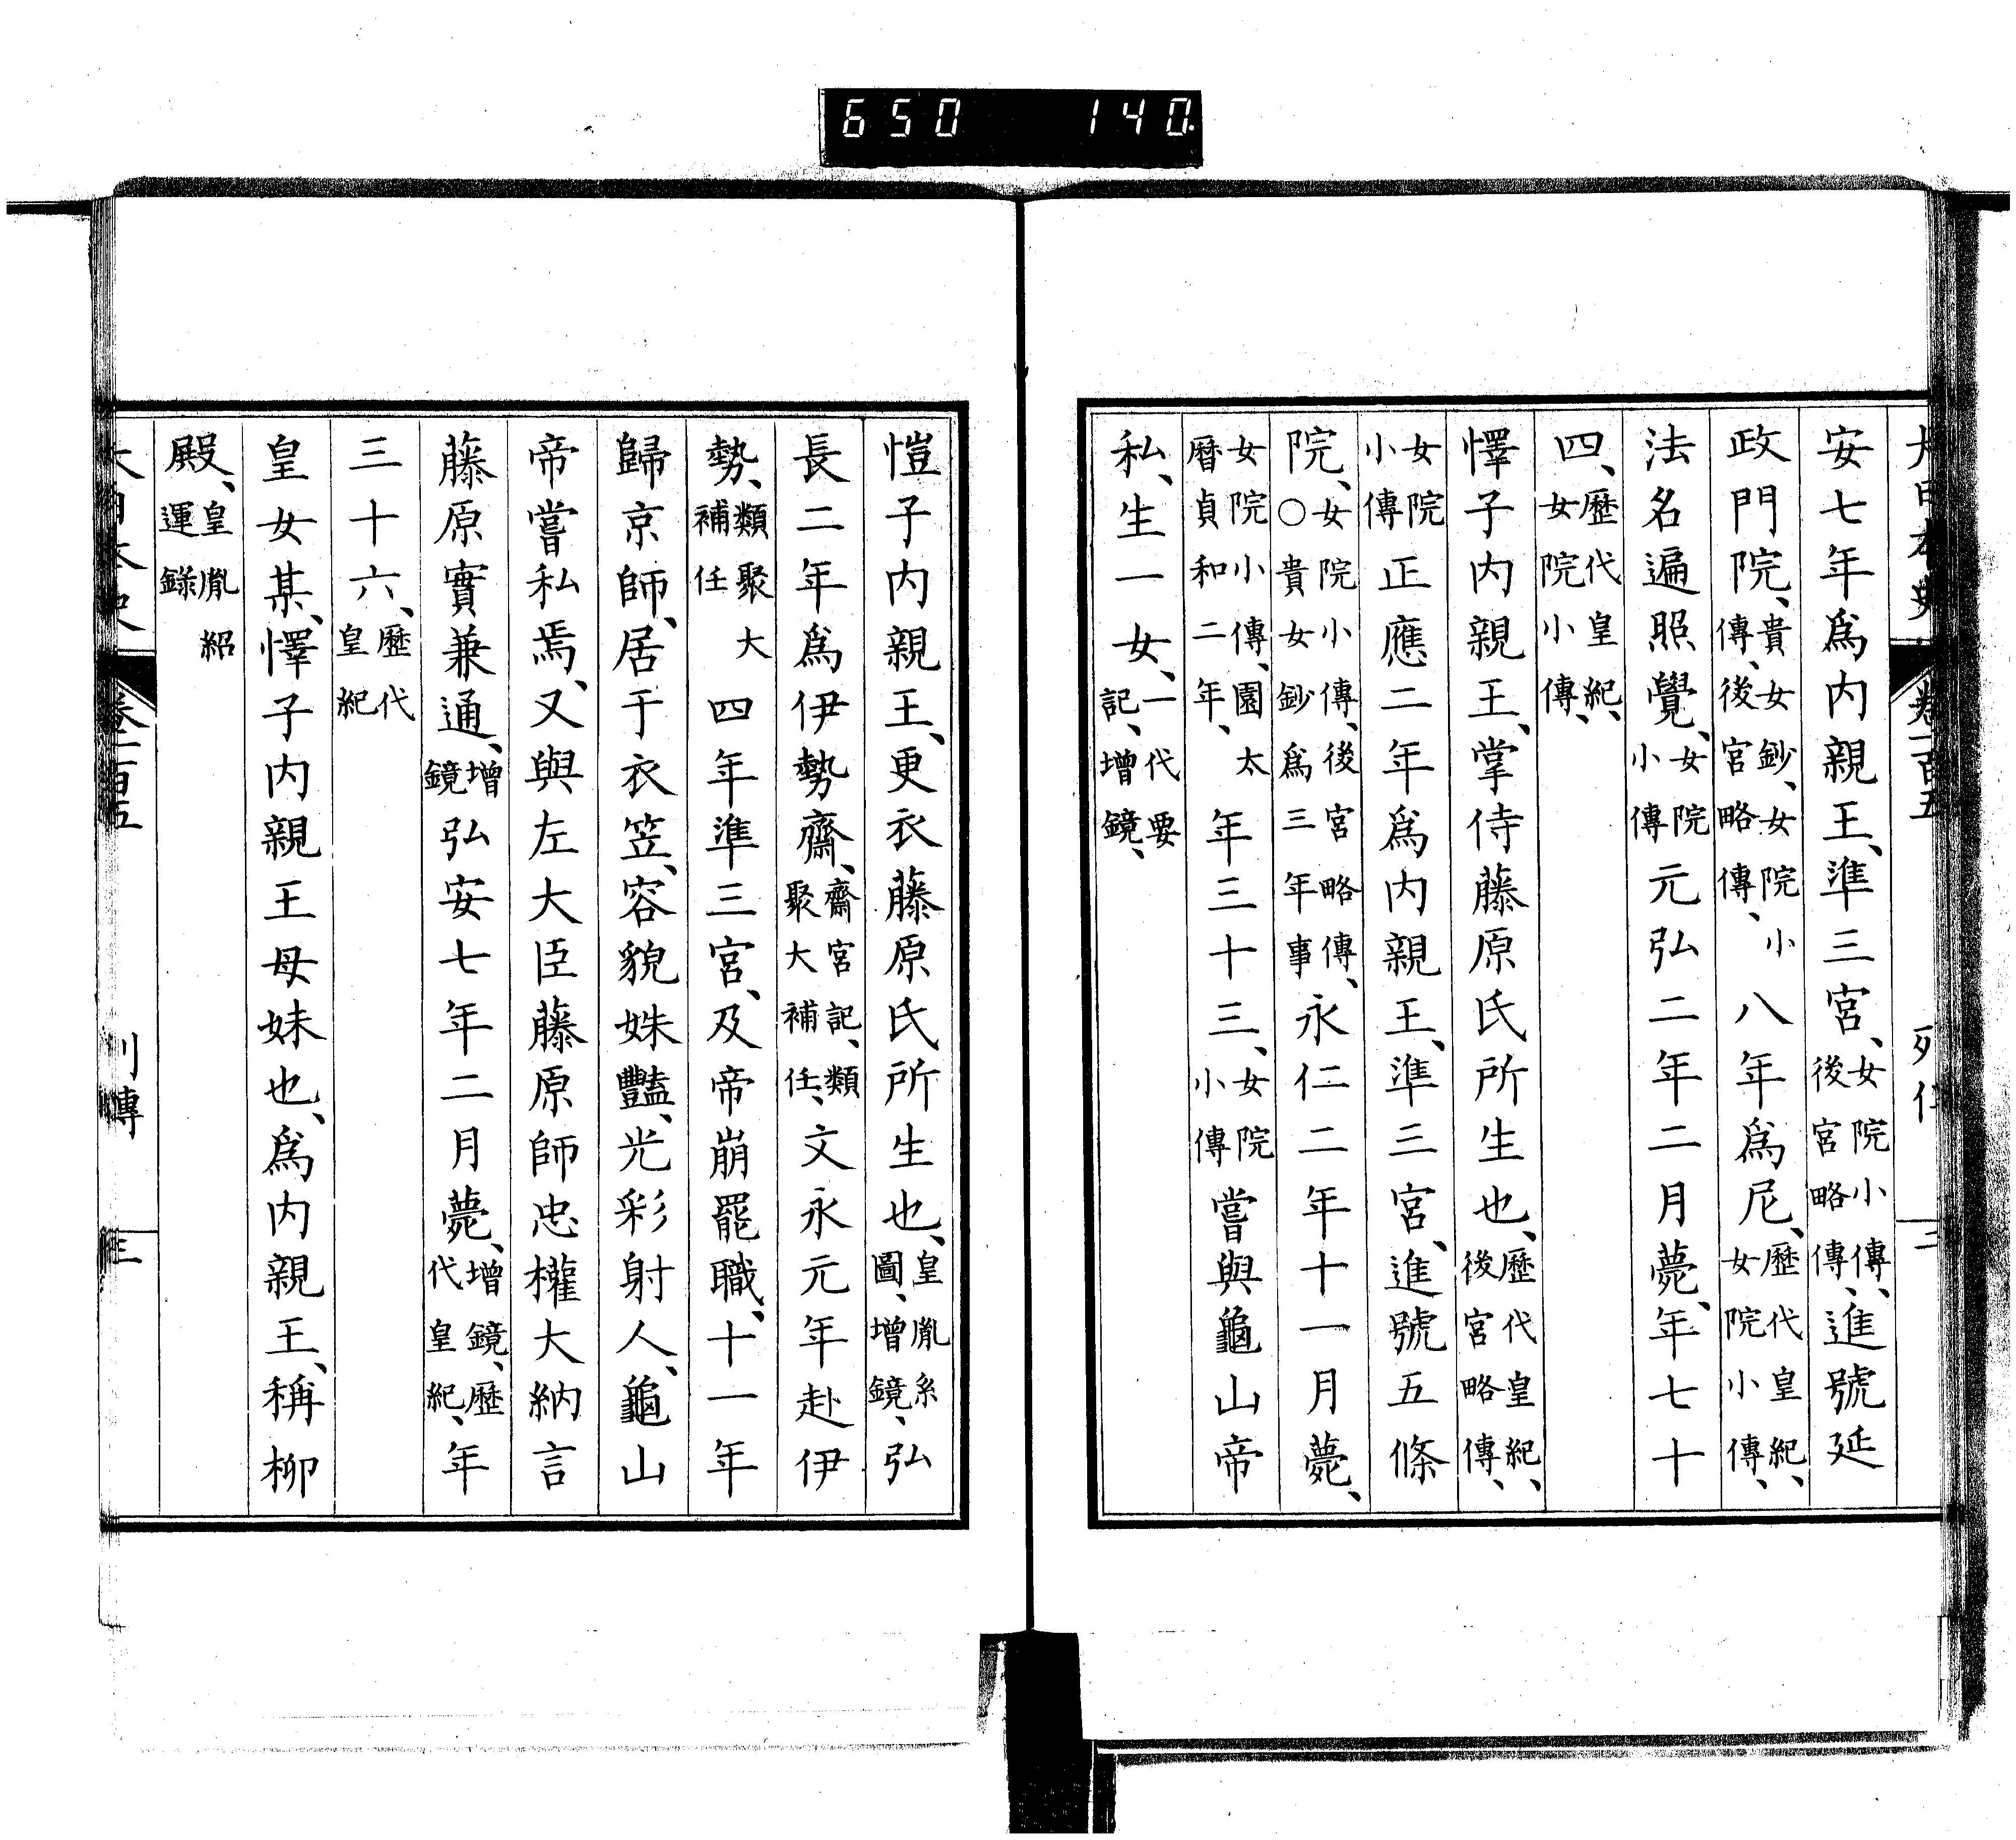 650 140.
安七年爲内親王、準三宮、女院小傳、後宮略傳、進號延
政門院、貴女鈔、女院小傳、後宮略傳、八年爲尼、歷代皇紀、女院小傳、
法名遍照覺、女院小傳元弘二年二月薨、年七十
四、歷代皇紀、女院小傳、
懌子内親王、掌侍藤原氏所生也、歷代皇紀、後宮略傳、
女院小傳正應二年爲内親王、準三宮、進號五條
院、女院小傳、後宮略傳、○貴女鈔爲三年事永仁二年十一月薨、
女院小傳、園太曆貞和二年、年三十三、女院小傳嘗與龜山帝
私、生一女、一代要記、增鏡、
愷子内親王、更衣藤原氏所生也、皇胤系圖、增鏡、弘
長二年爲伊勢齋、齋宮記、類聚大補任、文永元年赴伊
勢、類聚大補任四年準三宮、及帝崩罷職、十一年
歸京師、居于衣笠、容貌姝豔、光彩射人、龜山
帝嘗私焉、又與左大臣藤原師忠權大納言
藤原實兼通、增鏡弘安七年二月薨、增鏡、歷代皇紀、年
三十六、歷代皇紀
皇女某、懌子内親王母妹也、爲内親王、稱柳
殿、皇胤紹運錄
卷一百五 列傳 三